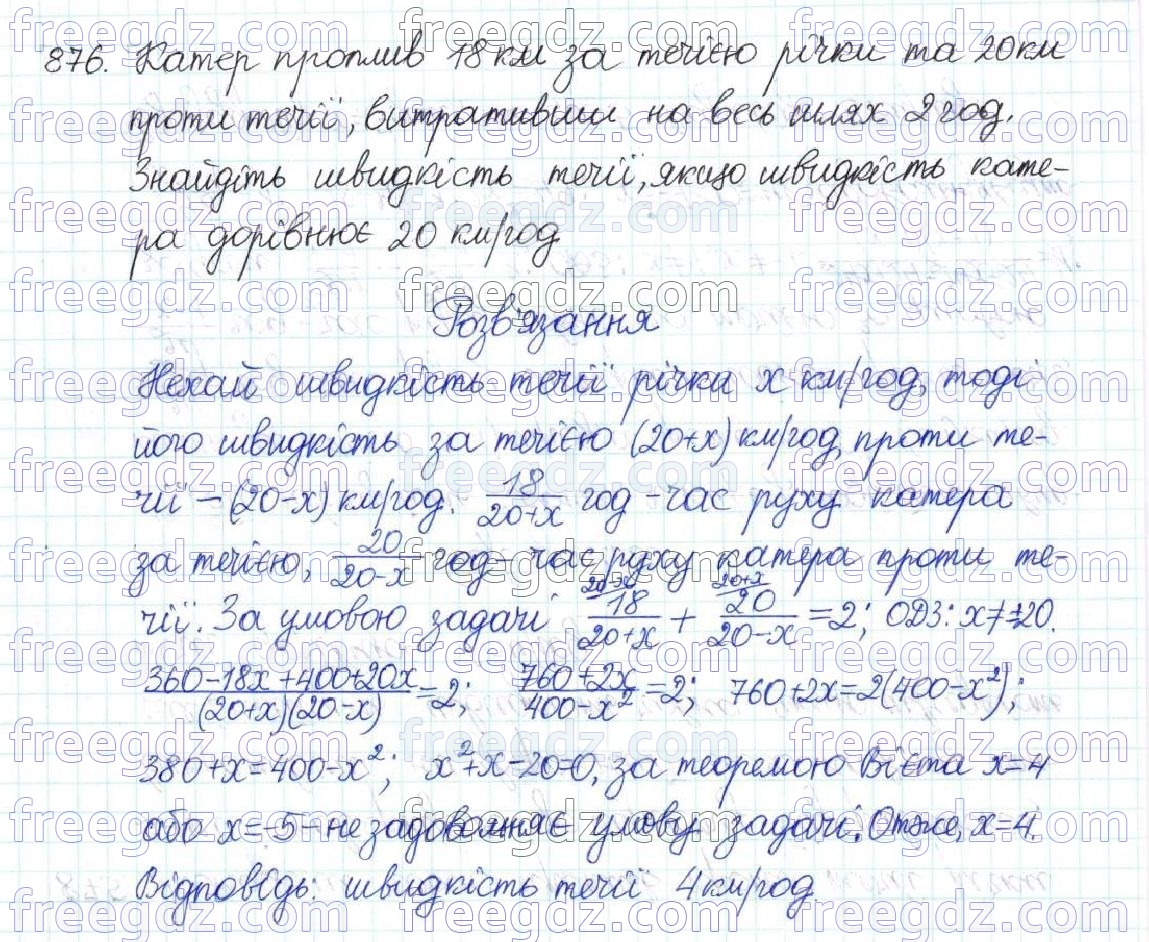 876. Катер проплив 18 км за течією річки та 20 км
проти течії, витративши на весь шлях 2 год.
Знайдіть швидкість течії, якщо швидкість кате-
ра дорівнює 20 км/год
Розв'язання
Нехай швидкість течії річки x км/год, тоді
його швидкість за течією (20+x) км/год, проти те-
чії – (20-x) км/год. 18/(20+x) год - час руху катера
за течією, 20/(20-x) год - час руху катера проти те-
чії. За умовою задачі 20-x/ 18/(20+x) + 20+x/ 20/(20-x) = 2; ОДЗ: x≠±20.
(360-18x+400+20x)/((20+x)(20-x)) = 2; (760+2x)/(400-x²) = 2; 760+2x=2(400-x²);
380+x=400-x²; x²+x-20=0, за теоремою Вієта x=4
або x=-5 - не задовольняє умову задачі. Отже, x=4.
Відповідь: швидкість течії 4 км/год.
freegdz.com